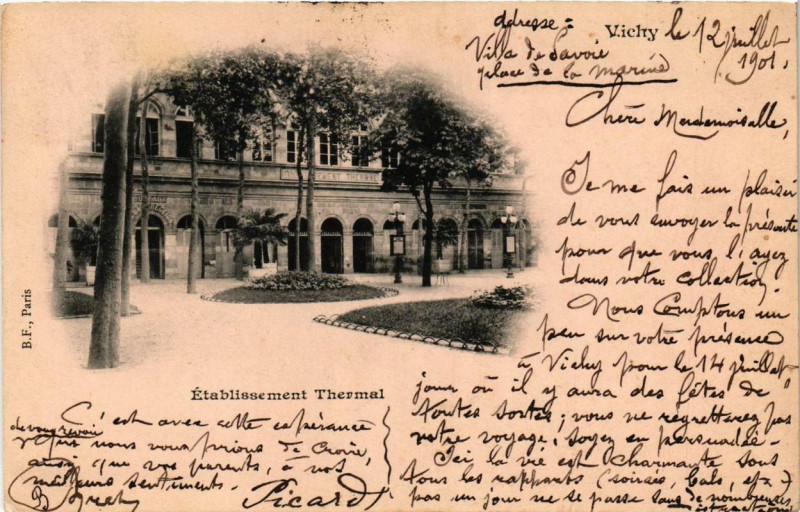 adresse =
Villa de Savoie
place de la marine
Vichy le 12 juillet
1901.
Chère Mademoiselle,
Je me fais un plaisir
de vous envoyer la présente
pour que vous l'ayez
dans votre collection.
Nous comptons un
peu sur votre présence
à Vichy pour le 14 juillet
jour où il y aura des fêtes de
toutes sortes; vous ne regretterez pas
votre voyage, soyez en persuadée -
Ici la vie est charmante sous
tous les rapports (soirées, bals, etc)
pas un jour ne se passe sans de nombreuses
distractions
B.F., Paris
ÉTABLISSEMENT THERMAL
Établissement Thermal
C'est avec cette espérance
de vous revoir
que nous vous prions de croire,
ainsi que vos parents, à nos
meilleurs sentiments.
Picard